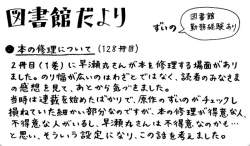 図書館だより
ずいの
図書館
勤務経験あり
● 本の修理について (128冊目)
2冊目(1巻)に早瀬丸さんが本を修理する場面があり
ました。のり幅が広いのはわざとではなく、読者のみなさま
の感想を見て、あとから気づきました。
当時は連載を始めたばかりで、原作のずいのがチェックし
損ねていた細かい部分なのですが、本の修理が得意な人、
不得意な人がいるし、早瀬丸さんは不得意なのかも…
と思い、そういう設定になり、この話を考えました。